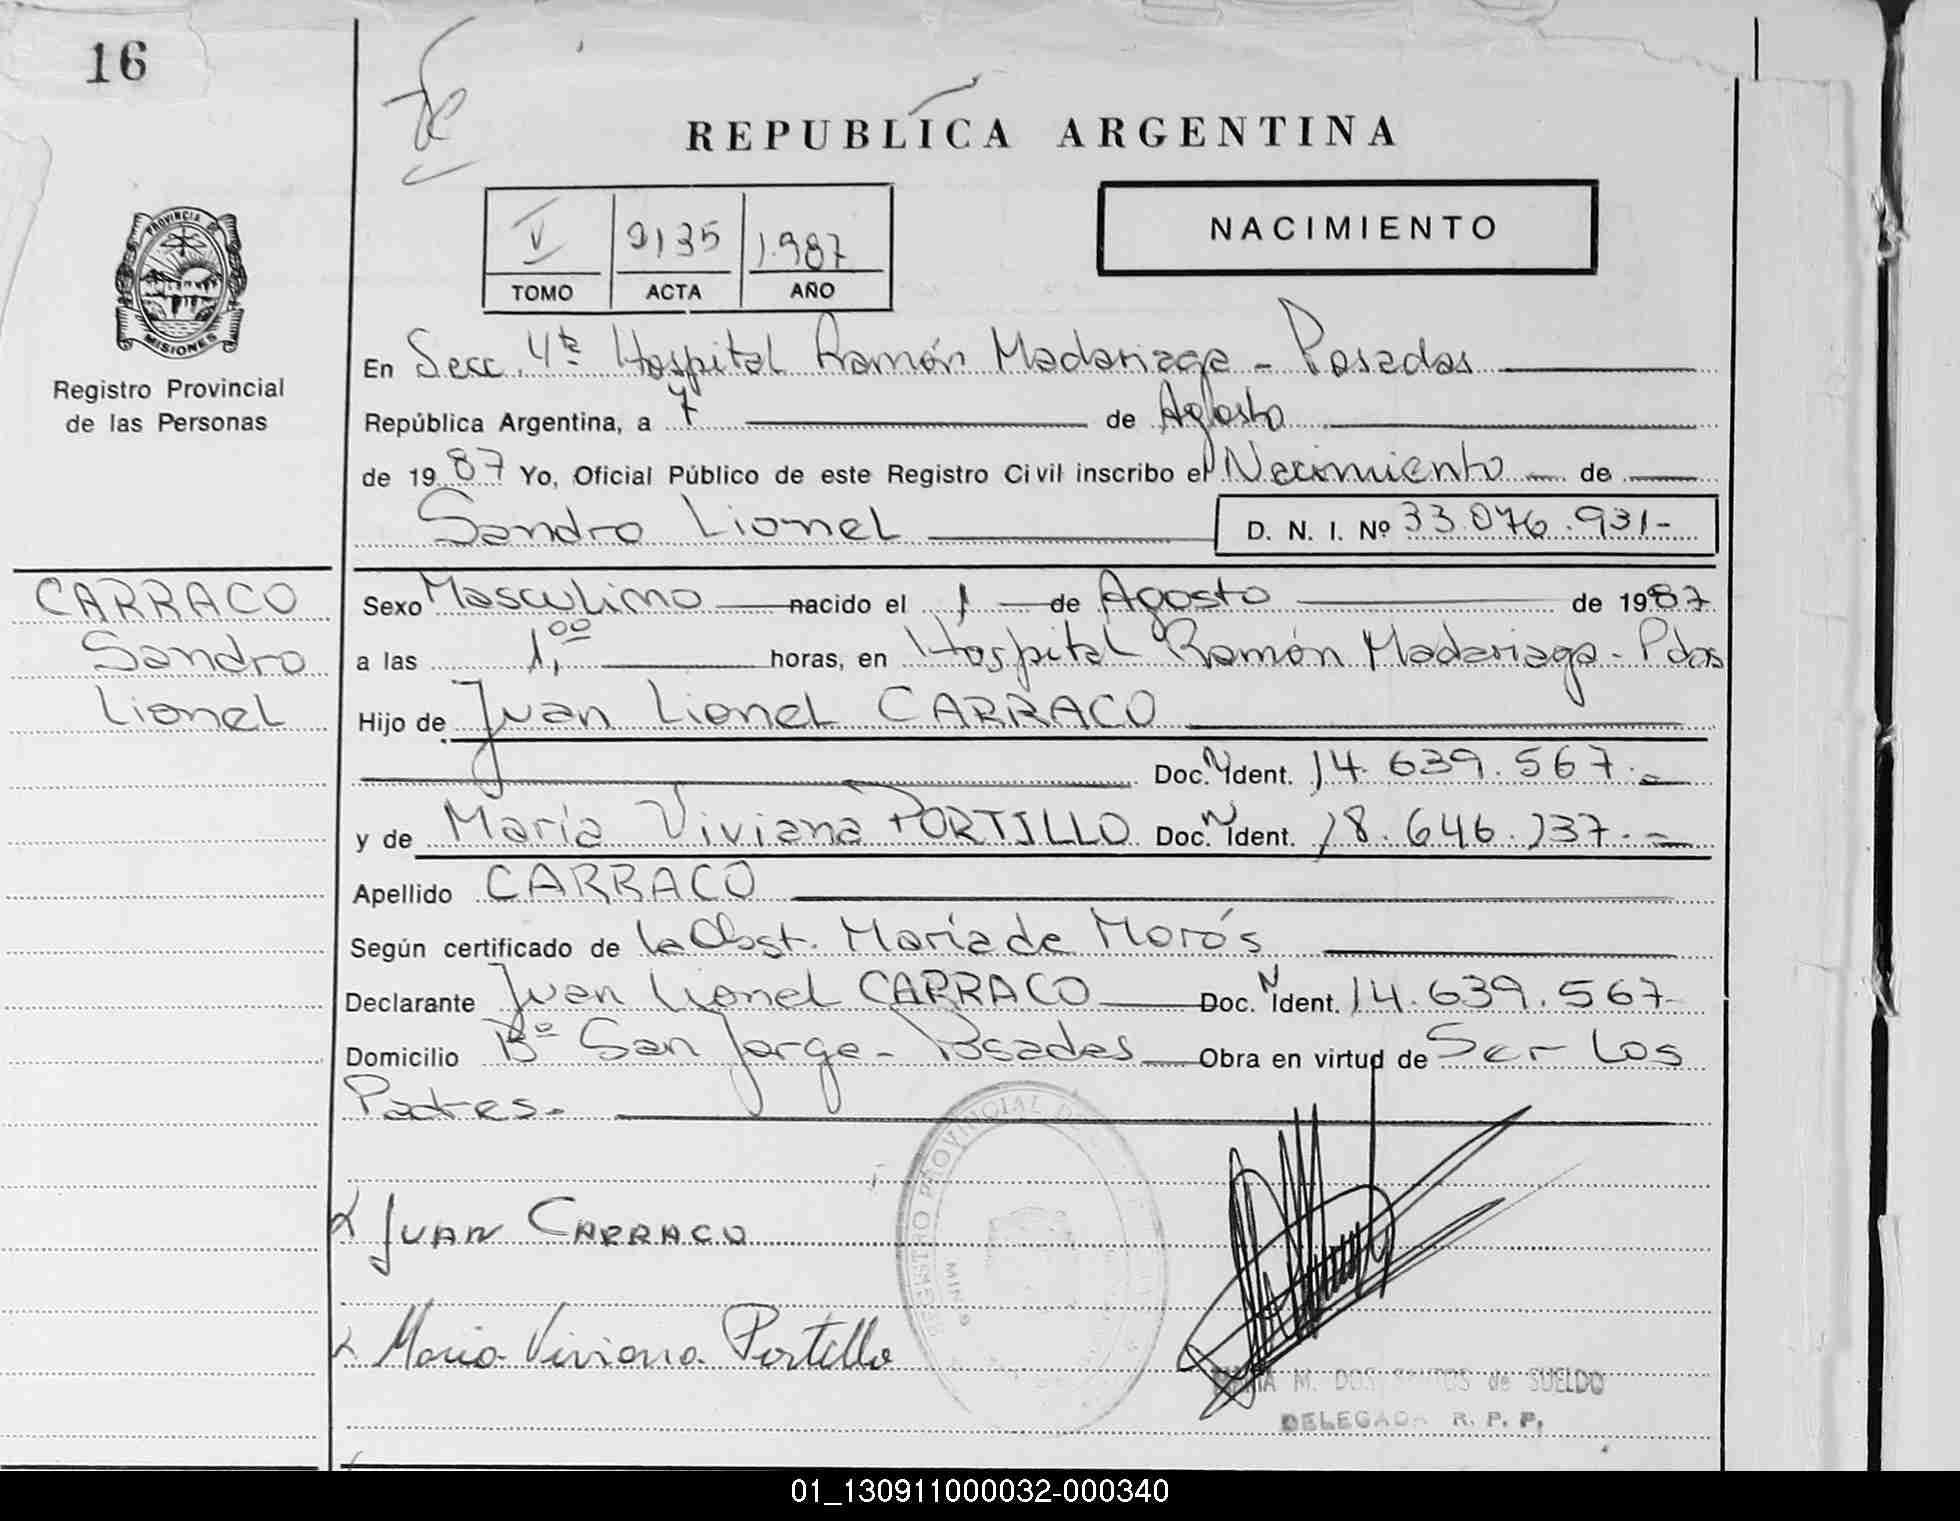 16
REPUBLICA ARGENTINA
V 2135 1.987
TOMO ACTA AÑO
NACIMIENTO
PROVINCIA
MISIONES
Registro Provincial
de las Personas
En Secc. 4ta Hospital Ramón Madariaga - Posadas
República Argentina, a 7 de Agosto
de 1987 Yo, Oficial Público de este Registro Civil inscribo el Nacimiento de
Sandro Lionel D. N. I. Nº 33.076.931-
CARRACO
Sandro
Lionel
Sexo Masculino nacido el 1 de Agosto de 1987
a las 1,00 horas, en Hospital Ramón Madariaga - Pdas
Hijo de Juan Lionel CARRACO
Doc. N Ident. 14.639.567.-
y de María Viviana PORTILLO Doc. N Ident. 18.646.137.-
Apellido CARRACO
Según certificado de la Obst. María de Morós
Declarante Juan Lionel CARRACO Doc. N Ident. 14.639.567-
Domicilio Bº San Jorge - Posadas Obra en virtud de Ser los
Padres.-
REGISTRO PROVINCIAL DE
JUAN CARRACO
Maria Viviana Portillo
MARIA M. DOS SANTOS de SUELDO
DELEGADA R. P. P.
01_130911000032-000340